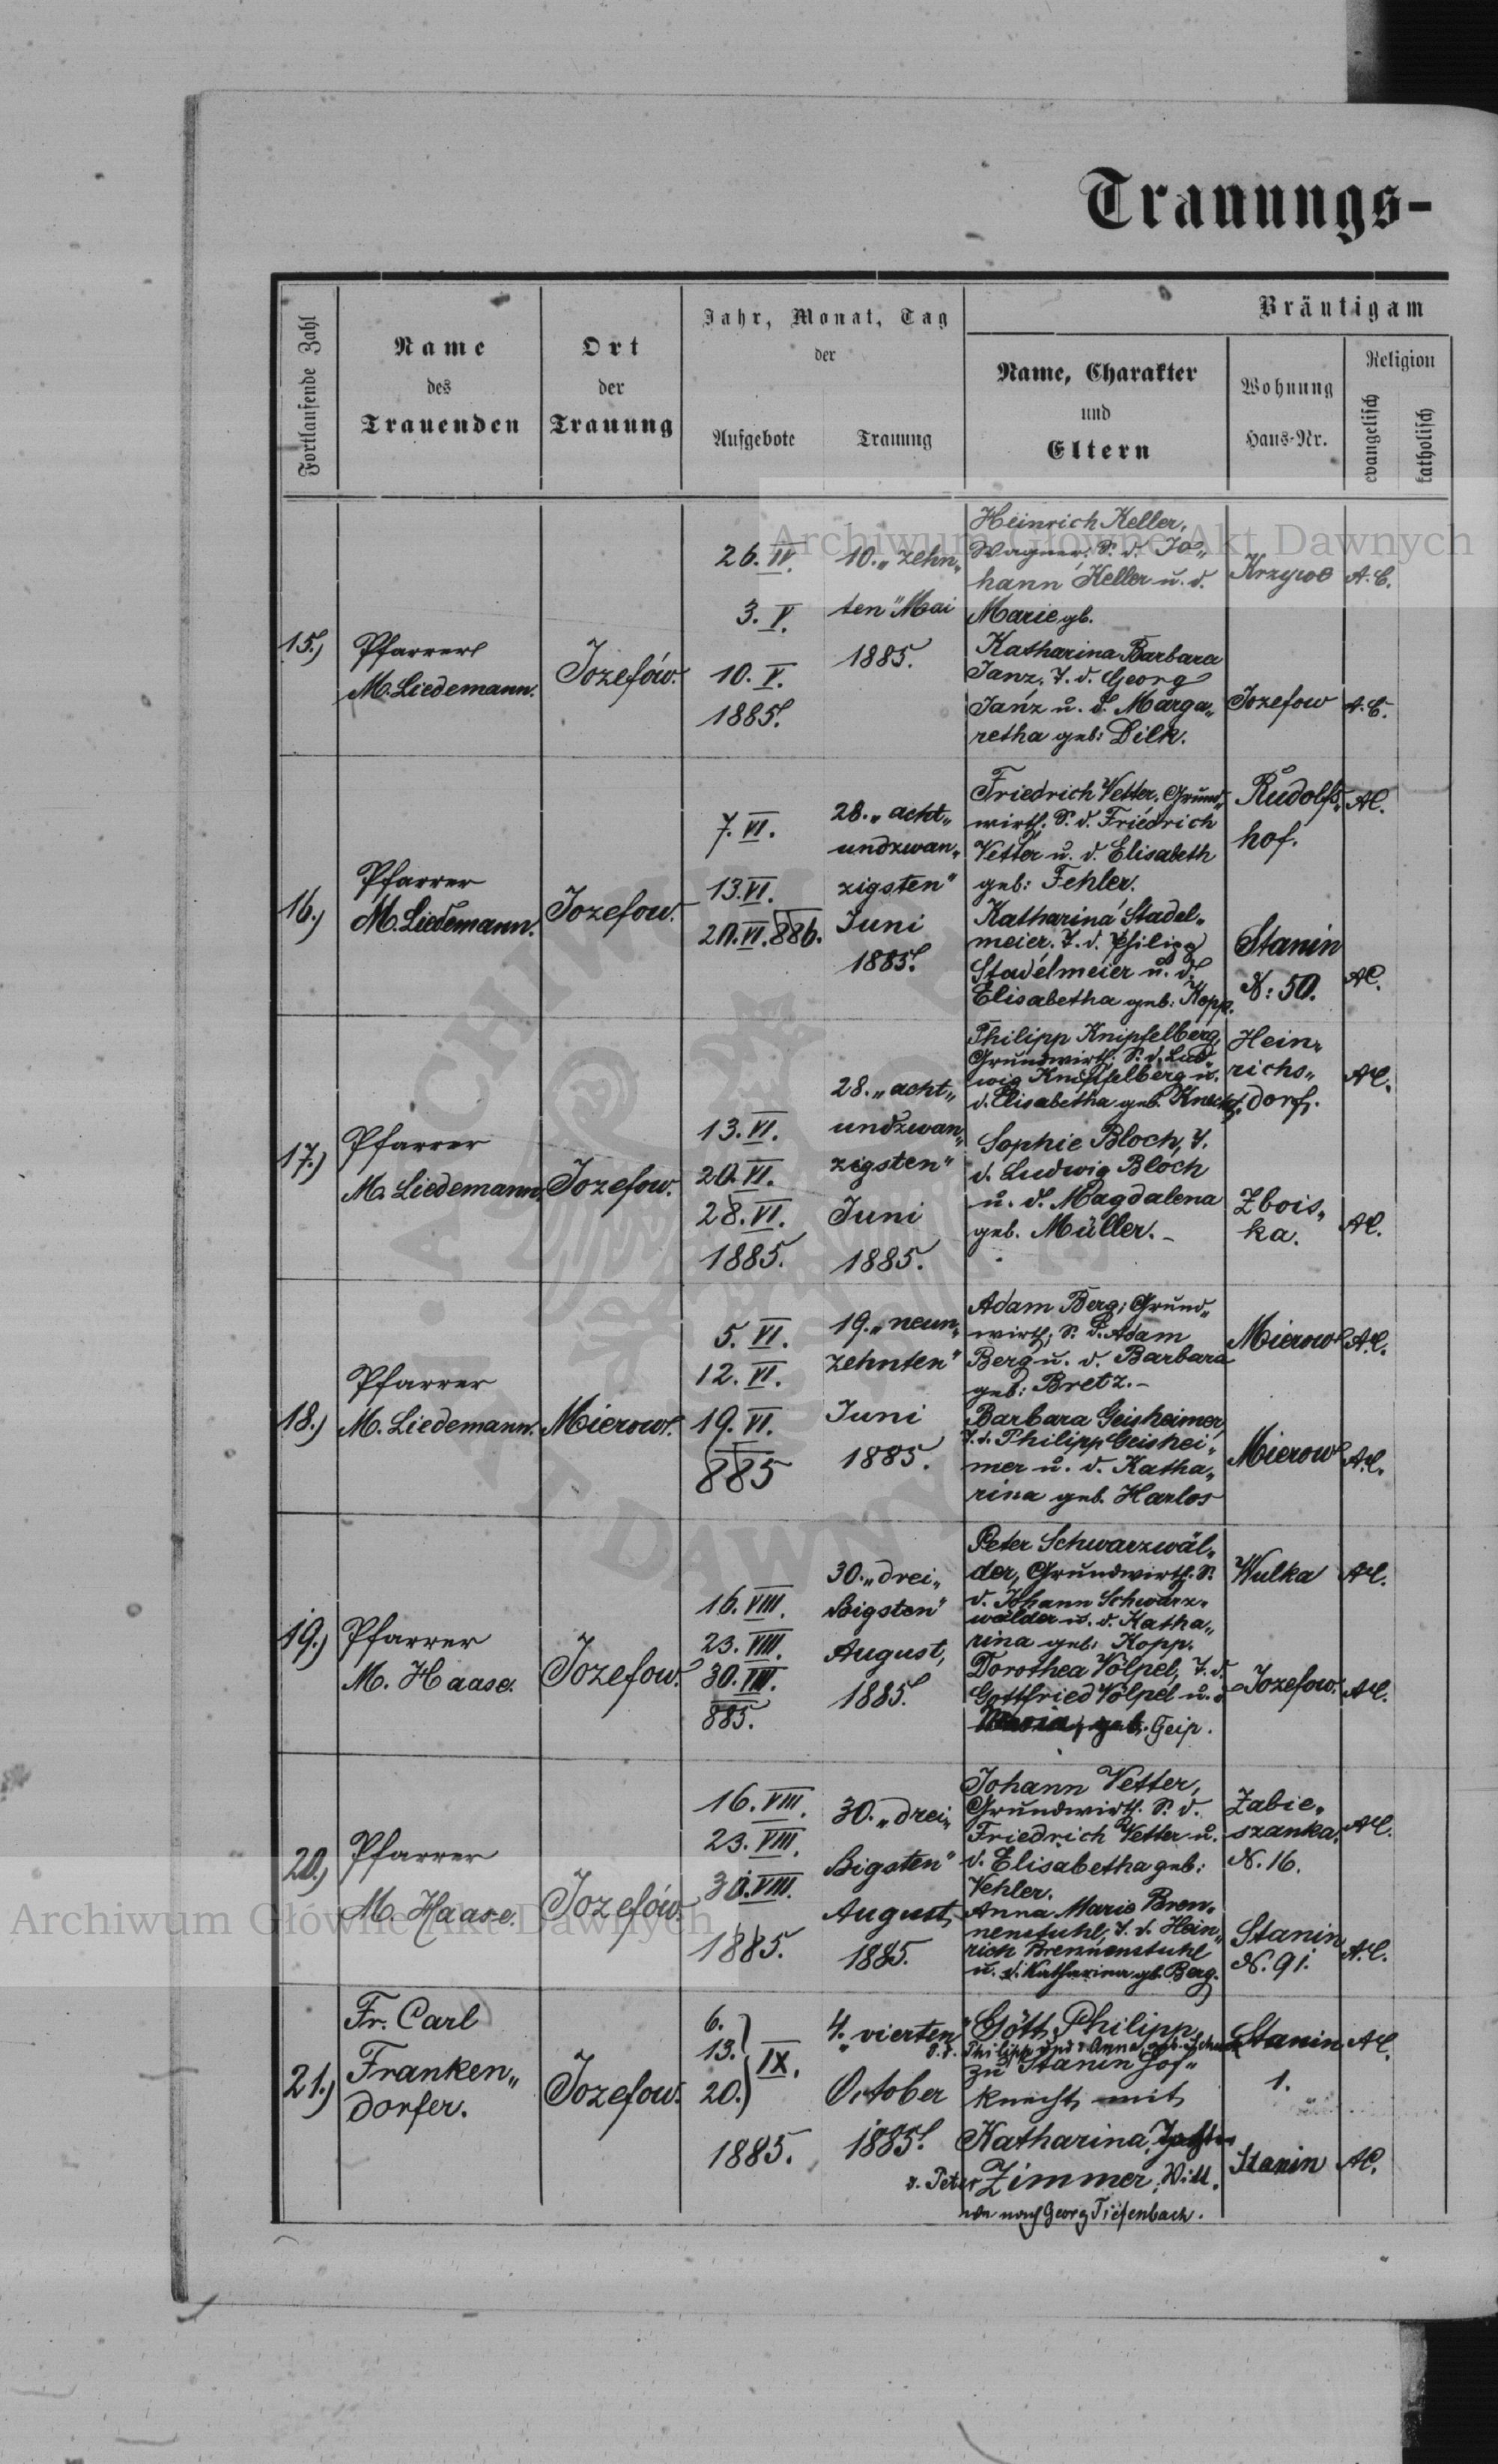 Trauungs-
Fortlaufende Zahl
Name
des
Trauenden
Ort
der
Trauung
Jahr, Monat, Tag
der
Aufgebote
Trauung
Bräutigam
Name, Charakter
und
Eltern
Wohnung
Haus-Nr.
Religion
evangelisch
katholisch
Archiwum Główne Akt Dawnych
15.)
Pfarrer
M. Liedemann.
Jozefów.
26. IV.
3. V.
10. V.
1885.
10. „zehn„
ten" Mai
1885.
Heinrich Keller,
Wagner, S. d. Jo„
hann Keller u. d.
Marie gb.
Katharina Barbara
Janz, T. d. Georg
Janz u. d. Marga„
retha geb: Dilk.
Krzywe
A. C.
Jozefow
A. C.
16.)
Pfarrer
M. Liedemann.
Jozefow.
7. VI.
13. VI.
20. VI. 886.
28. „acht„
undzwan„
zigsten"
Juni
1885.
Friedrich Vetter, Grund„
wirth, S. d. Friedrich
Vetter u. d. Elisabeth
geb: Fehler.
Katharina Stadel„
meier, T. d. Philipp
Stadelmeier u. d.
Elisabetha geb: Kopp.
Rudolfs„
hof.
AC.
Stanin
N: 50.
AC.
17.)
Pfarrer
M. Liedemann.
Jozefow.
13. VI.
20. VI.
28. VI.
1885.
28. „acht„
undzwan„
zigsten"
Juni
1885.
Philipp Knipfelberg,
Grundwirth, S. d. Lud„
wig Knipfelberg u.
d. Elisabetha geb. Knecht.
Sophie Bloch, T.
d. Ludwig Bloch
u. d. Magdalena
geb. Müller. –
Hein„
richs„
dorf.
AC.
Zbois„
ka.
AC.
18.)
Pfarrer
M. Liedemann.
Mierow.
5. VI.
12. VI.
19. VI.
885
19. „neun„
zehnten"
Juni
1885.
Adam Berg, Grund„
wirth, S. d. Adam
Berg u. d. Barbara
geb: Bretz. –
Barbara Geisheimer,
T. d. Philipp Geishei„
mer u. d. Katha„
rina geb. Harlos
Mierow
A.C.
Mierow
A.C.
19.)
Pfarrer
M. Haase.
Jozefow.
16. VIII.
23. VIII.
30. VIII.
885.
30. „drei„
ßigsten"
August,
1885.
Peter Schwarzwäl„
der, Grundwirth. S.
d. Johann Schwarz„
wälder u. d. Katha„
rina geb: Kopp.
Dorothea Völpel, T. d.
Gottfried Völpel u. d
Maria, geb. Geip.
Wulka
AC.
Jozefow.
AC.
20.)
Pfarrer
M. Haase.
Jozefów.
16. VIII.
23. VIII.
30. VIII.
1885.
30. „drei„
ßigsten"
August,
1885.
Johann Vetter,
Grundwirth. S. d.
Friedrich Vetter u.
d. Elisabetha geb:
Vehler.
Anna Marie Bren„
nenstuhl, T. d. Hein„
rich Brennenstuhl
u. d. Katharina gb. Berg.
Zabie„
szanka.
N. 16.
AC.
Stanin
N. 91.
A.C.
Archiwum Główne Akt Dawnych
21.)
Fr. Carl
Franken„
dorfer.
Jozefow.
6.
13. IX.
20.
1885.
4. „vierten"
October
1885.
Göth, Philipp,
S. d. Philipp und d Anna, geb.
zu Stanin Hof„
knecht, mit
Katharina, Tochter
d. Peter Zimmer, Witt„
we nach Georg Tiefenbach.
Stanin
1.
AC.
Stanin
AC.